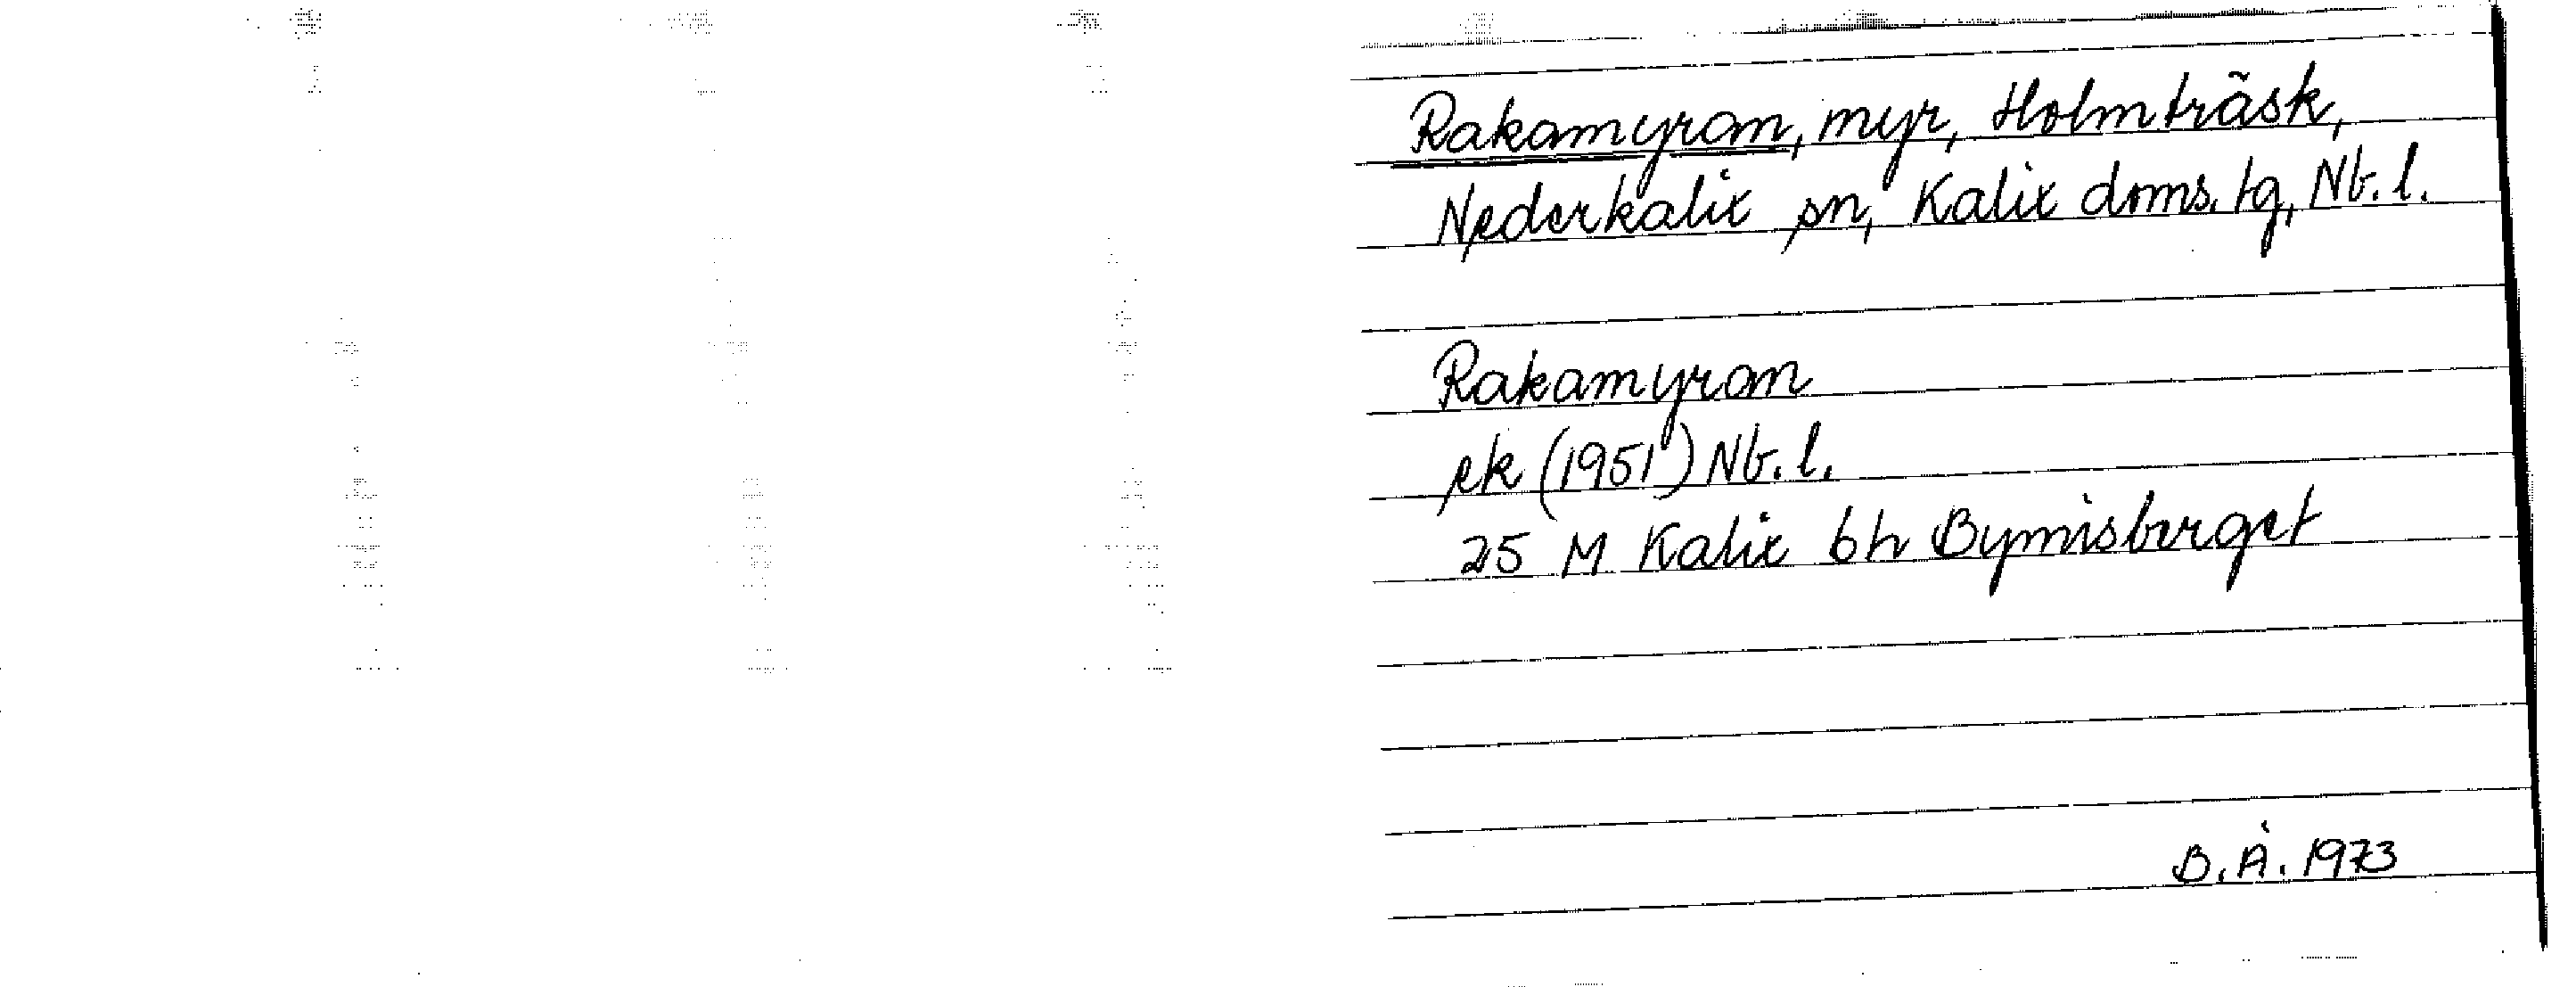 Rakamyran, myr, Holmträsk,
Nederkalix sn, Kalix doms. tg, Nb. l.
Rakamyran
ek (1951) Nb. l.
25 M Kalix 6h Bymisberget
B. Å. 1973